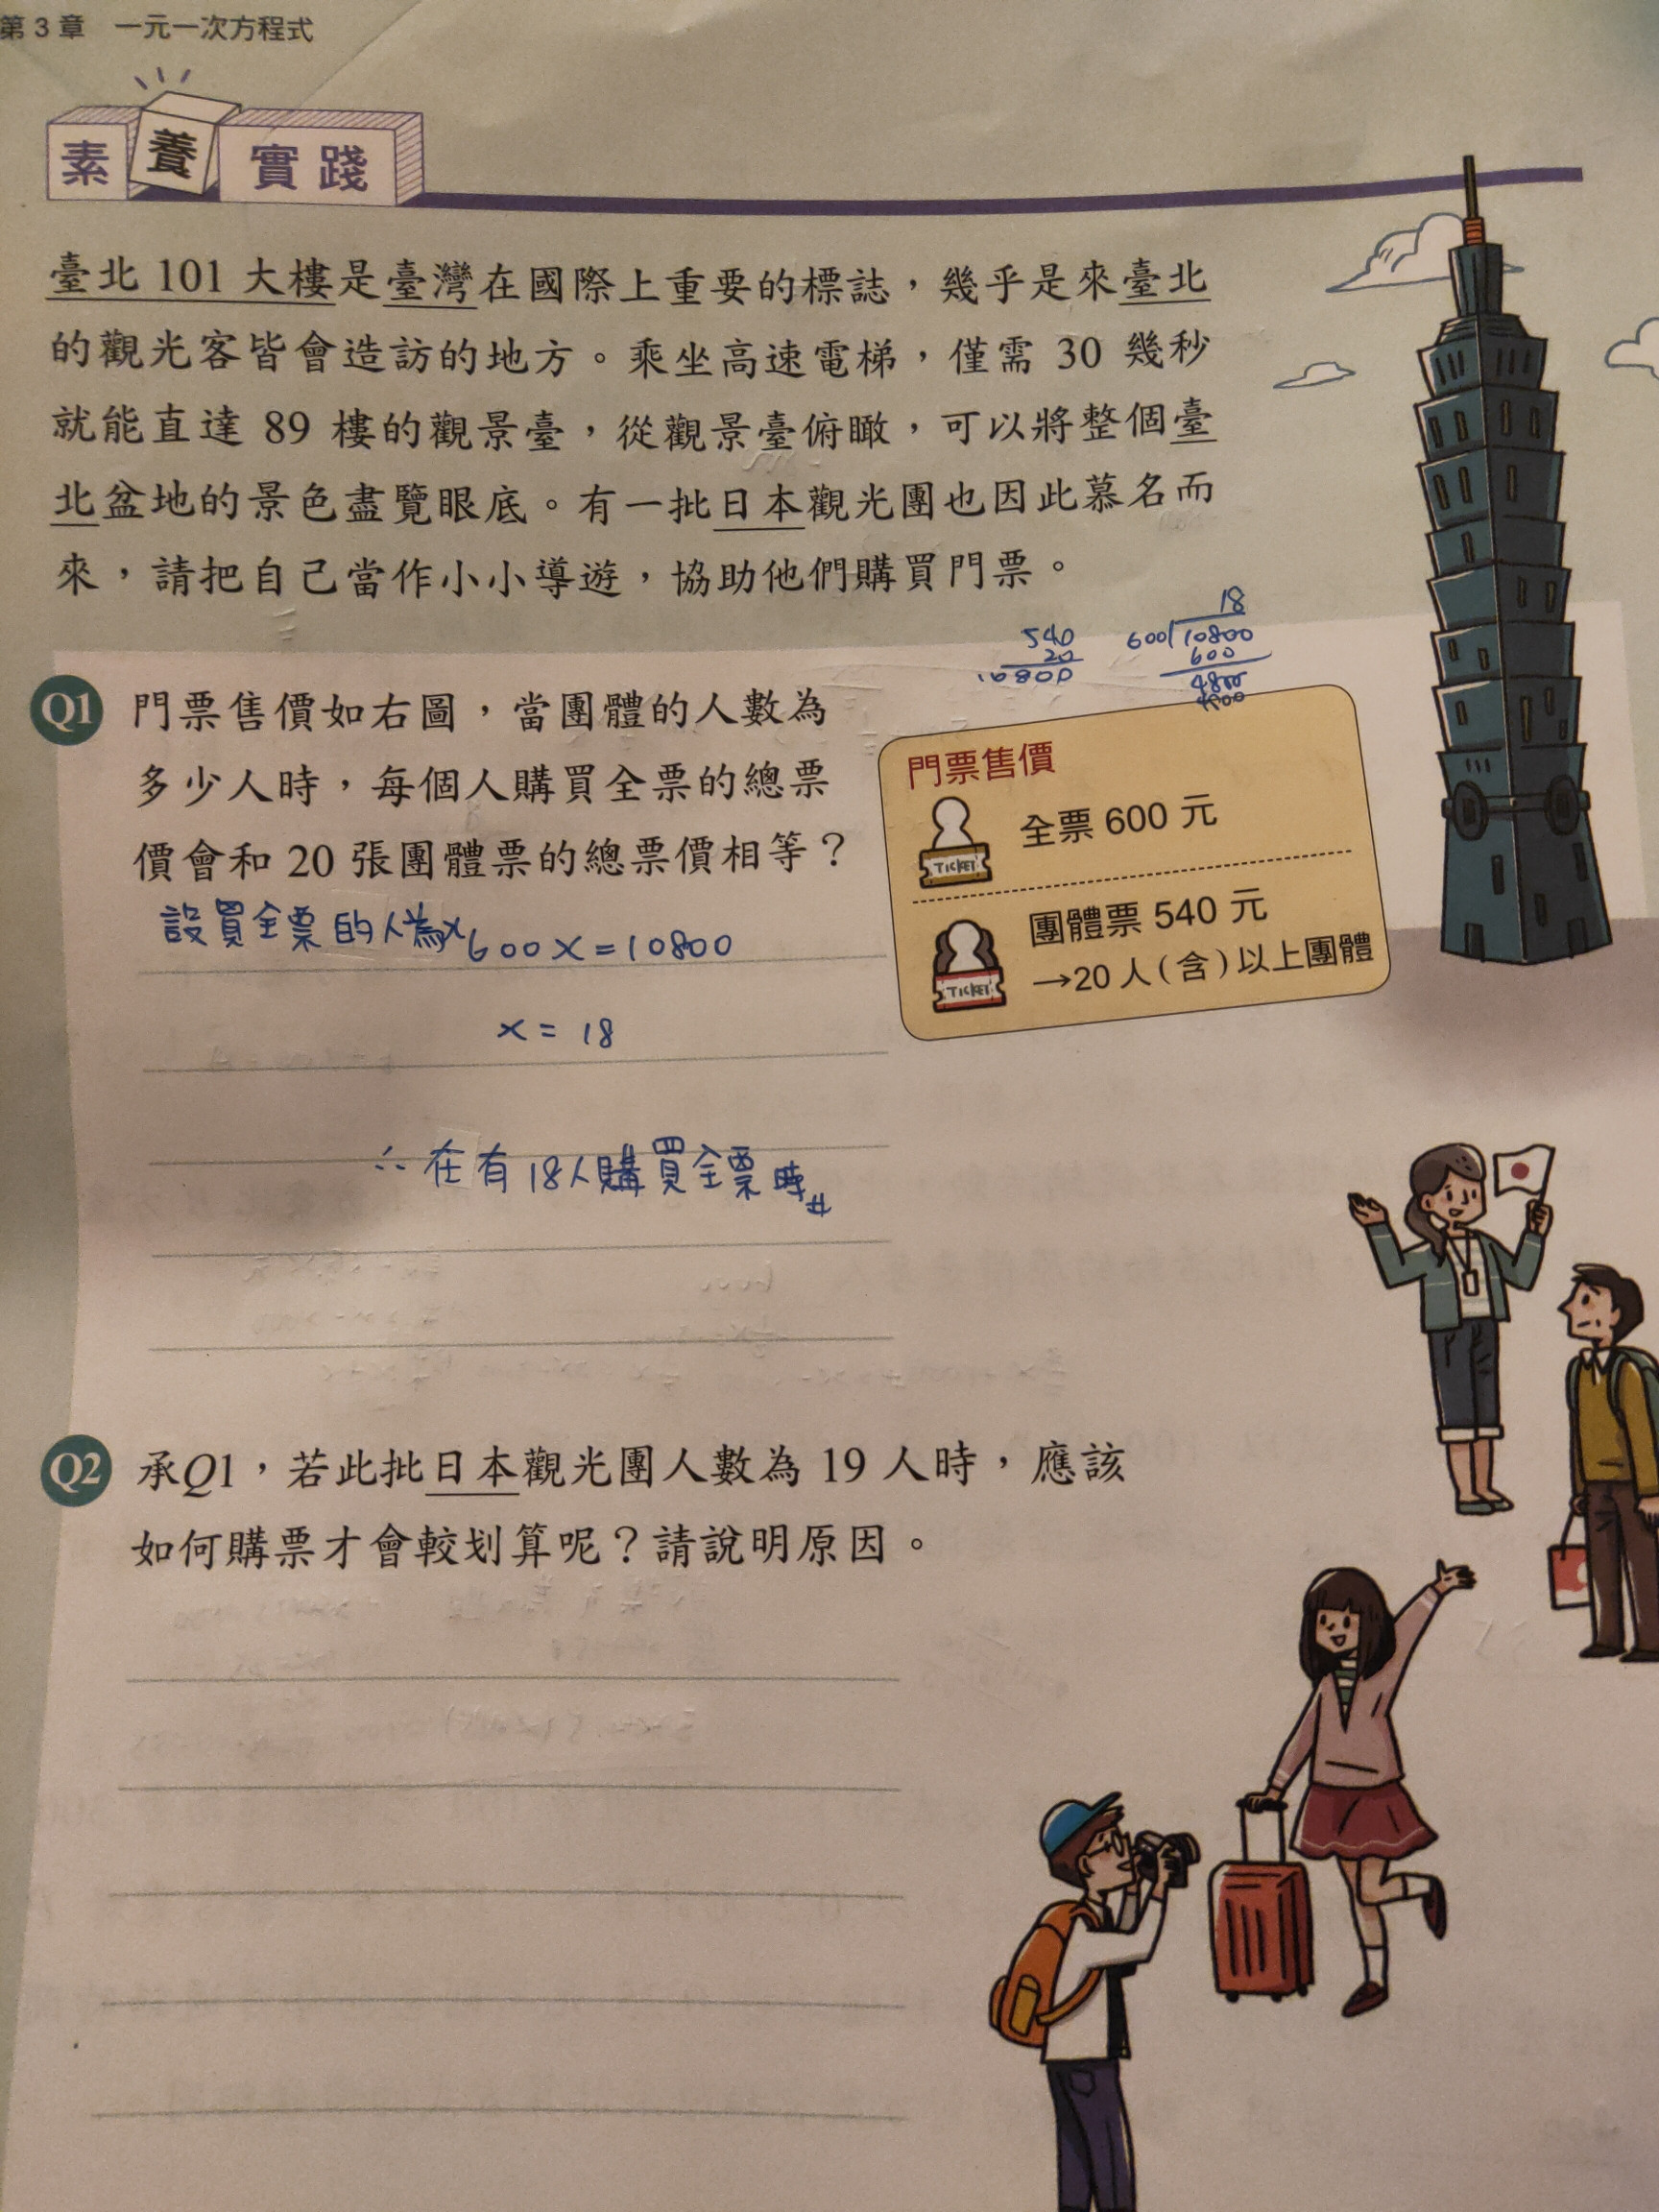 第3章 一元一次方程式
素養實踐
臺北 101 大樓是臺灣在國際上重要的標誌，幾乎是來臺北
的觀光客皆會造訪的地方。乘坐高速電梯，僅需 30 幾秒
就能直達 89 樓的觀景臺，從觀景臺俯瞰，可以將整個臺
北盆地的景色盡覽眼底。有一批日本觀光團也因此慕名而
來，請把自己當作小小導遊，協助他們購買門票。
540
20
10800
18
600 10800
600
4800
4800
Q1 門票售價如右圖，當團體的人數為
多少人時，每個人購買全票的總票
價會和 20 張團體票的總票價相等？
設買全票的人為x
600x=10800
x = 18
∴在有18人購買全票時#
門票售價
TICKET
全票 600 元
TICKET
團體票 540 元
→20 人(含)以上團體
Q2 承Q1，若此批日本觀光團人數為 19 人時，應該
如何購票才會較划算呢？請說明原因。